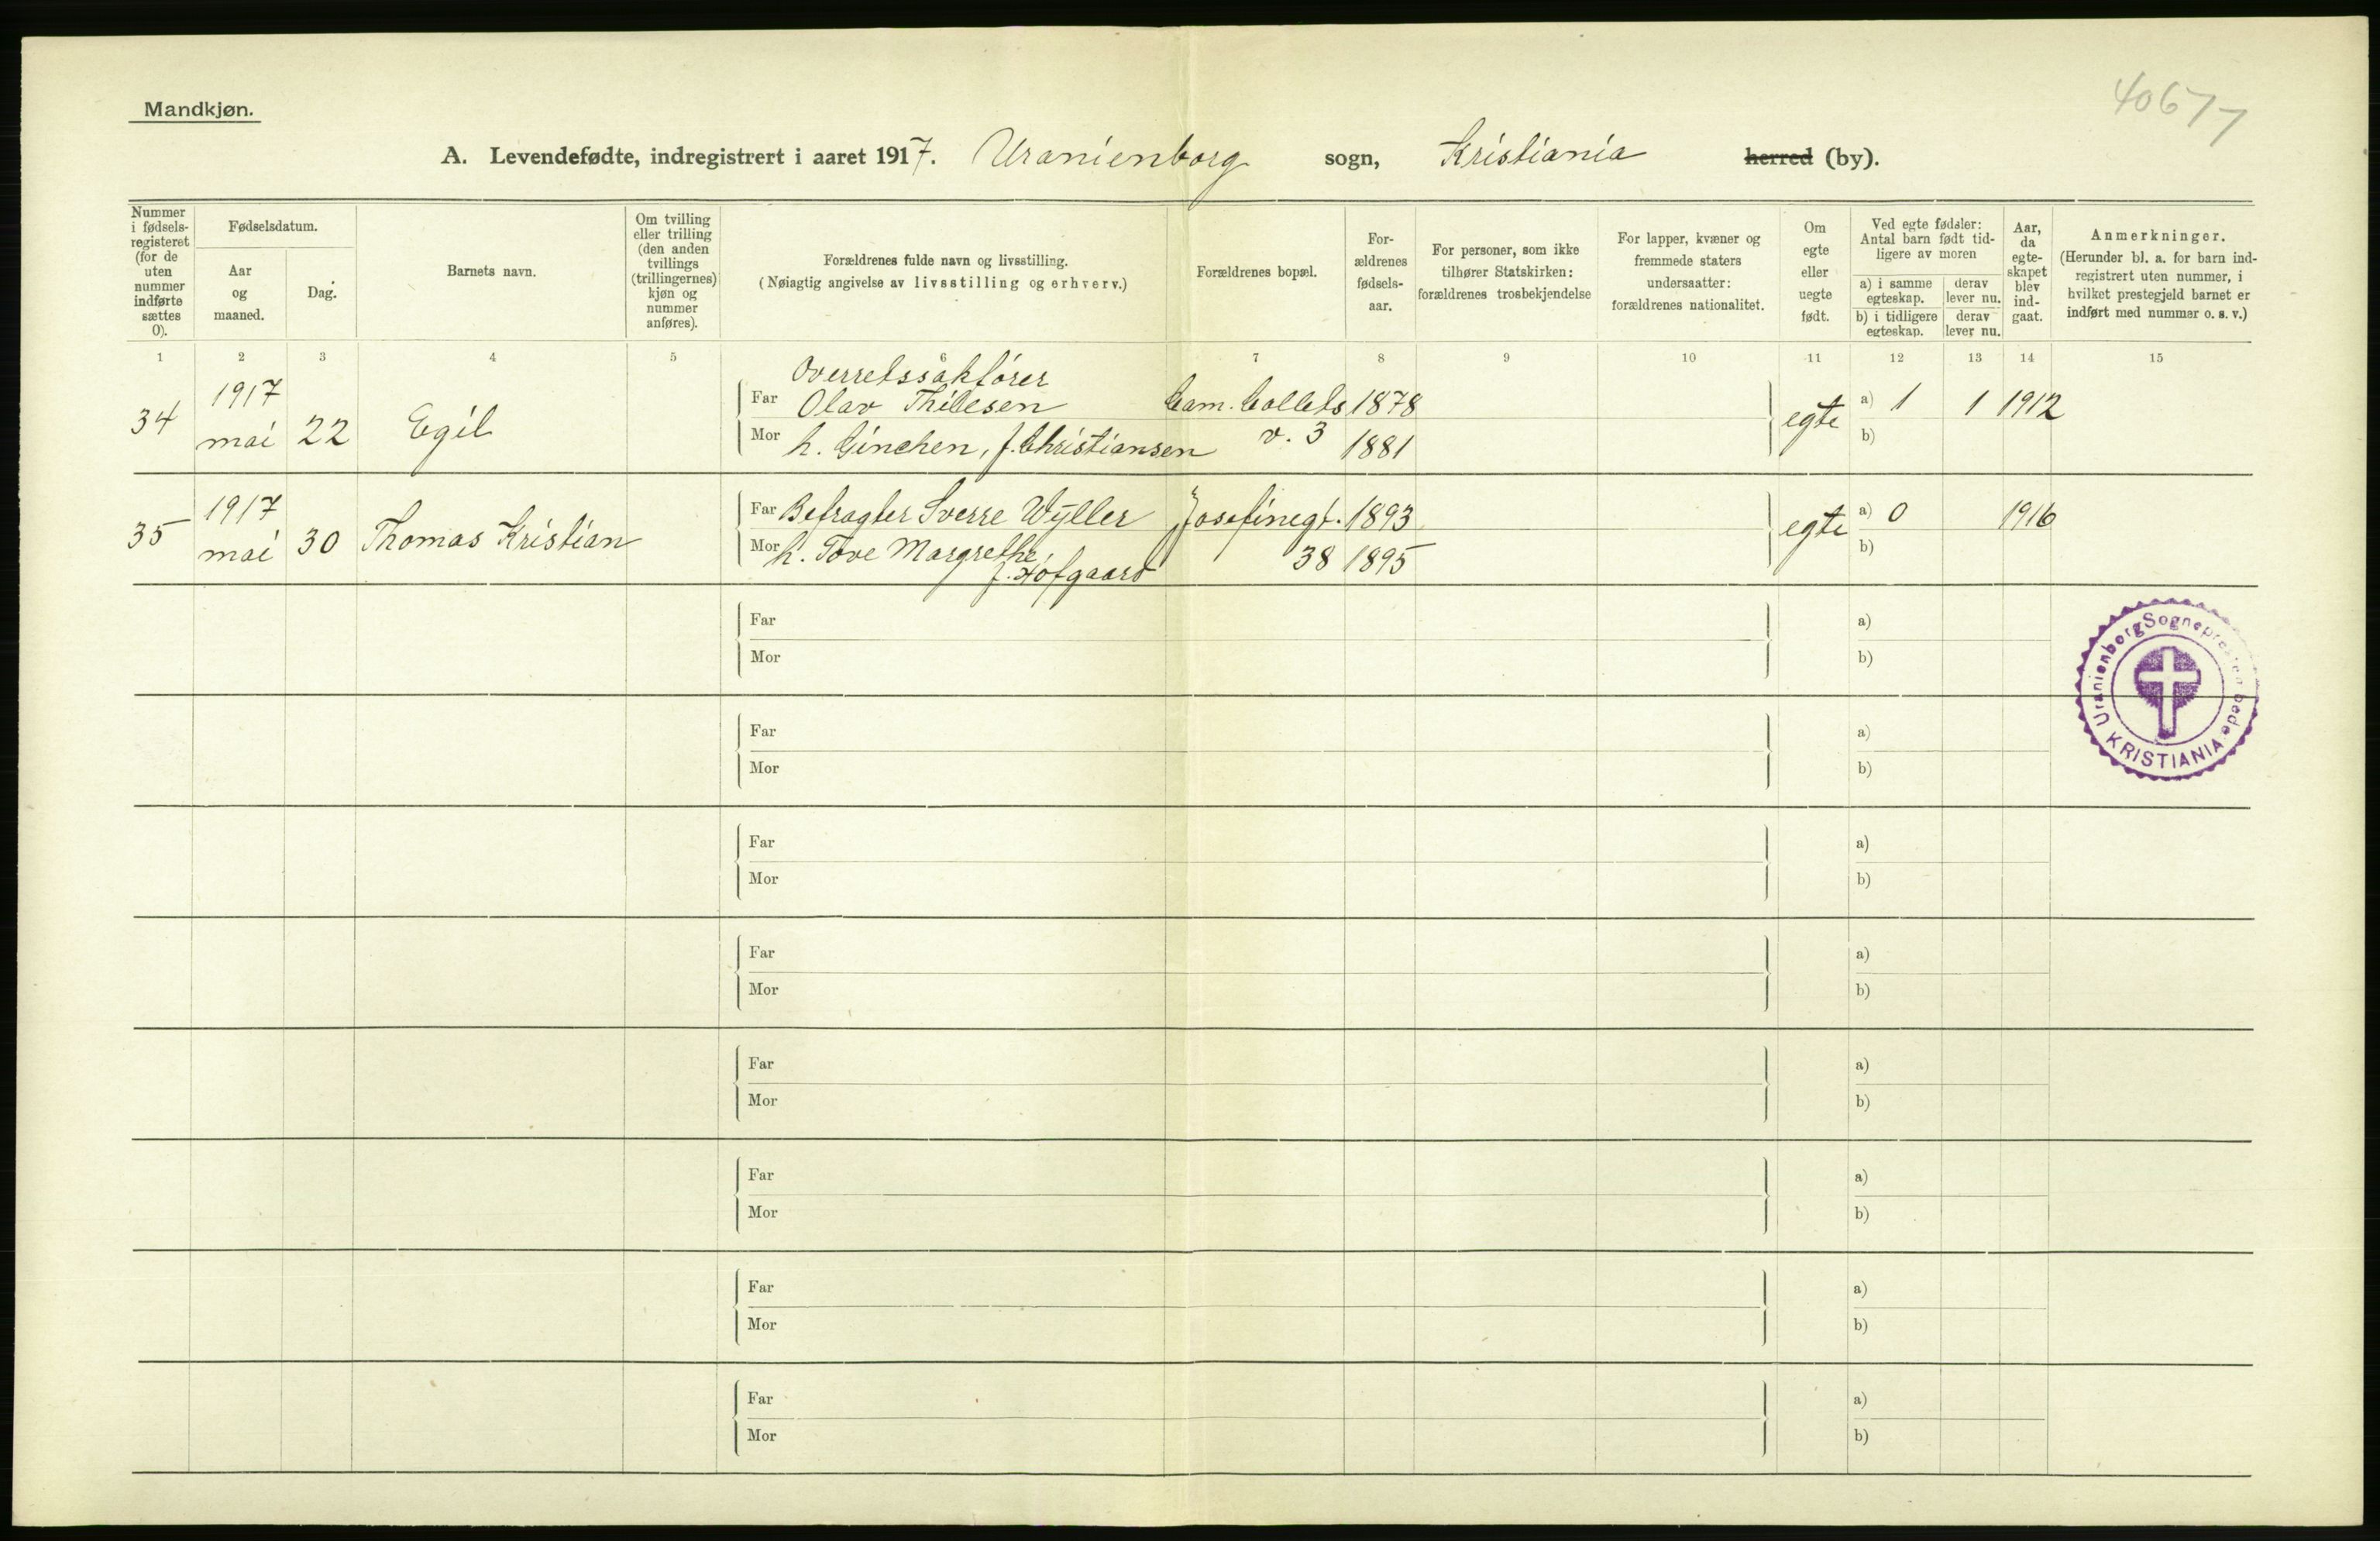 40677
Mandkjøn.
A. Levendefødte, indregistrert i aaret 1917. Uranienborg sogn, Kristiania herred (by).
Nummer i fødselsregisteret (for de uten nummer indførte sættes 0).
Fødselsdatum.
Aar og maaned.
Dag.
Barnets navn.
Om tvilling eller trilling (den anden tvillings (trillingernes) kjøn og nummer anføres).
Forældrenes fulde navn og livsstilling.
(Nøiagtig angivelse av livsstilling og erhverv.)
Forældrenes bopæl.
Forældrenes fødselsaar.
For personer, som ikke tilhører Statskirken: forældrenes trosbekjendelse
For lapper, kvæner og fremmede staters undersaatter: forældrenes nationalitet.
Om egte eller uegte født.
Ved egte fødsler: Antal barn født tidligere av moren
a) i samme egteskap.
derav lever nu.
b) i tidligere egteskap.
derav lever nu.
Aar, da egteskapet blev indgaat.
Anmerkninger.
(Herunder bl. a. for barn indregistrert uten nummer, i hvilket prestegjeld barnet er indført med nummer o. s. v.)
1 2 3 4 5 6 7 8 9 10 11 12 13 14 15
Overretssakfører
34 1917 mai 22 Egil Far Olav Thilesen Cam. Collets 1878 egte a) 1 1 1912
Mor h. Ginchen, f. Christiansen v. 3 1881 b)
35 1917 mai 30 Thomas Kristian Far Befragter Sverre Wyller Josefinegt. 1893 egte a) 0 1916
Mor h. Tove Margrethe, f. Hofgaard 38 1895 b)
Far a)
Mor b)
Uranienborg Sogneprestembede
KRISTIANIA
Far a)
Mor b)
Far a)
Mor b)
Far a)
Mor b)
Far a)
Mor b)
Far a)
Mor b)
Far a)
Mor b)
Far a)
Mor b)